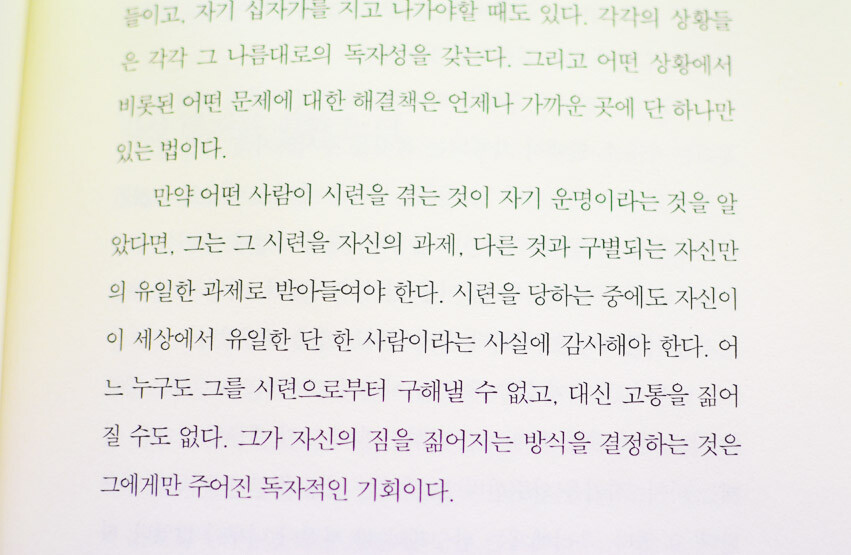 들이고, 자기 십자가를 지고 나가야할 때도 있다. 각각의 상황들
은 각각 그 나름대로의 독자성을 갖는다. 그리고 어떤 상황에서
비롯된 어떤 문제에 대한 해결책은 언제나 가까운 곳에 단 하나만
있는 법이다.
만약 어떤 사람이 시련을 겪는 것이 자기 운명이라는 것을 알
았다면, 그는 그 시련을 자신의 과제, 다른 것과 구별되는 자신만
의 유일한 과제로 받아들여야 한다. 시련을 당하는 중에도 자신이
이 세상에서 유일한 단 한 사람이라는 사실에 감사해야 한다. 어
느 누구도 그를 시련으로부터 구해낼 수 없고, 대신 고통을 짊어
질 수도 없다. 그가 자신의 짐을 짊어지는 방식을 결정하는 것은
그에게만 주어진 독자적인 기회이다.